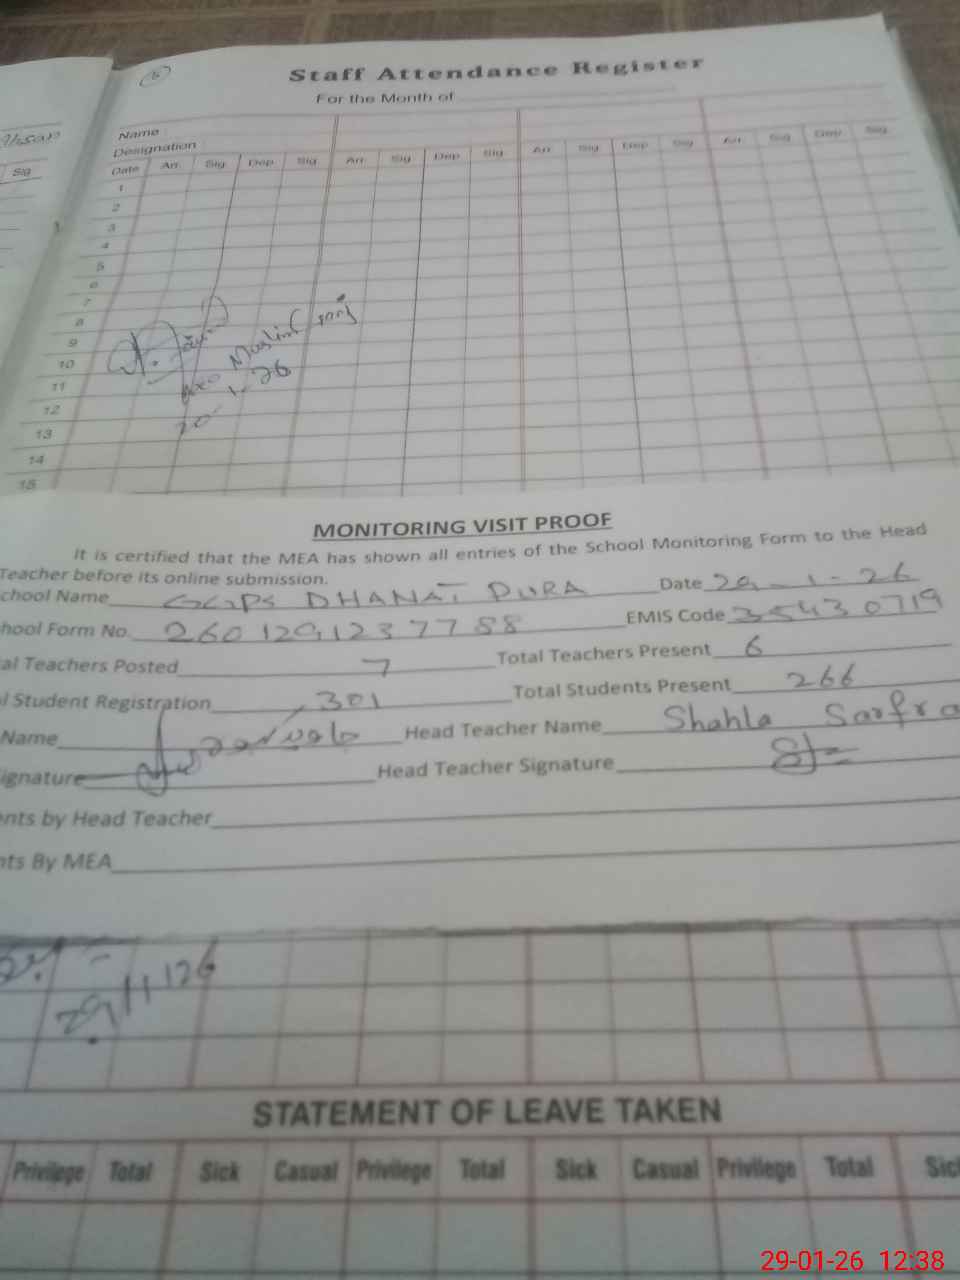 5
Staff Attendance Register
For the Month of
Name
Designation
Date Arr. Sig Dep Sig Arr. Sig Dep Sig Arr. Sig Dep Sig Arr. Sig Dep Sig
Sig
1
2
3
4
5
6
7
8
9
10
11
12
13
14
15
20-1-26
MONITORING VISIT PROOF
It is certified that the MEA has shown all entries of the School Monitoring Form to the Head
Teacher before its online submission.
chool Name DHANAT PURA Date 29-1-26
hool Form No. 2601291237788 EMIS Code 35430719
al Teachers Posted 7 Total Teachers Present 6
l Student Registration 301 Total Students Present 266
Name Head Teacher Name Shahla Sarfra
ignature Head Teacher Signature
nts by Head Teacher
nts By MEA
29/1/26
STATEMENT OF LEAVE TAKEN
Privilege Total Sick Casual Privilege Total Sick Casual Privilege Total Sic
29-01-26 12:38